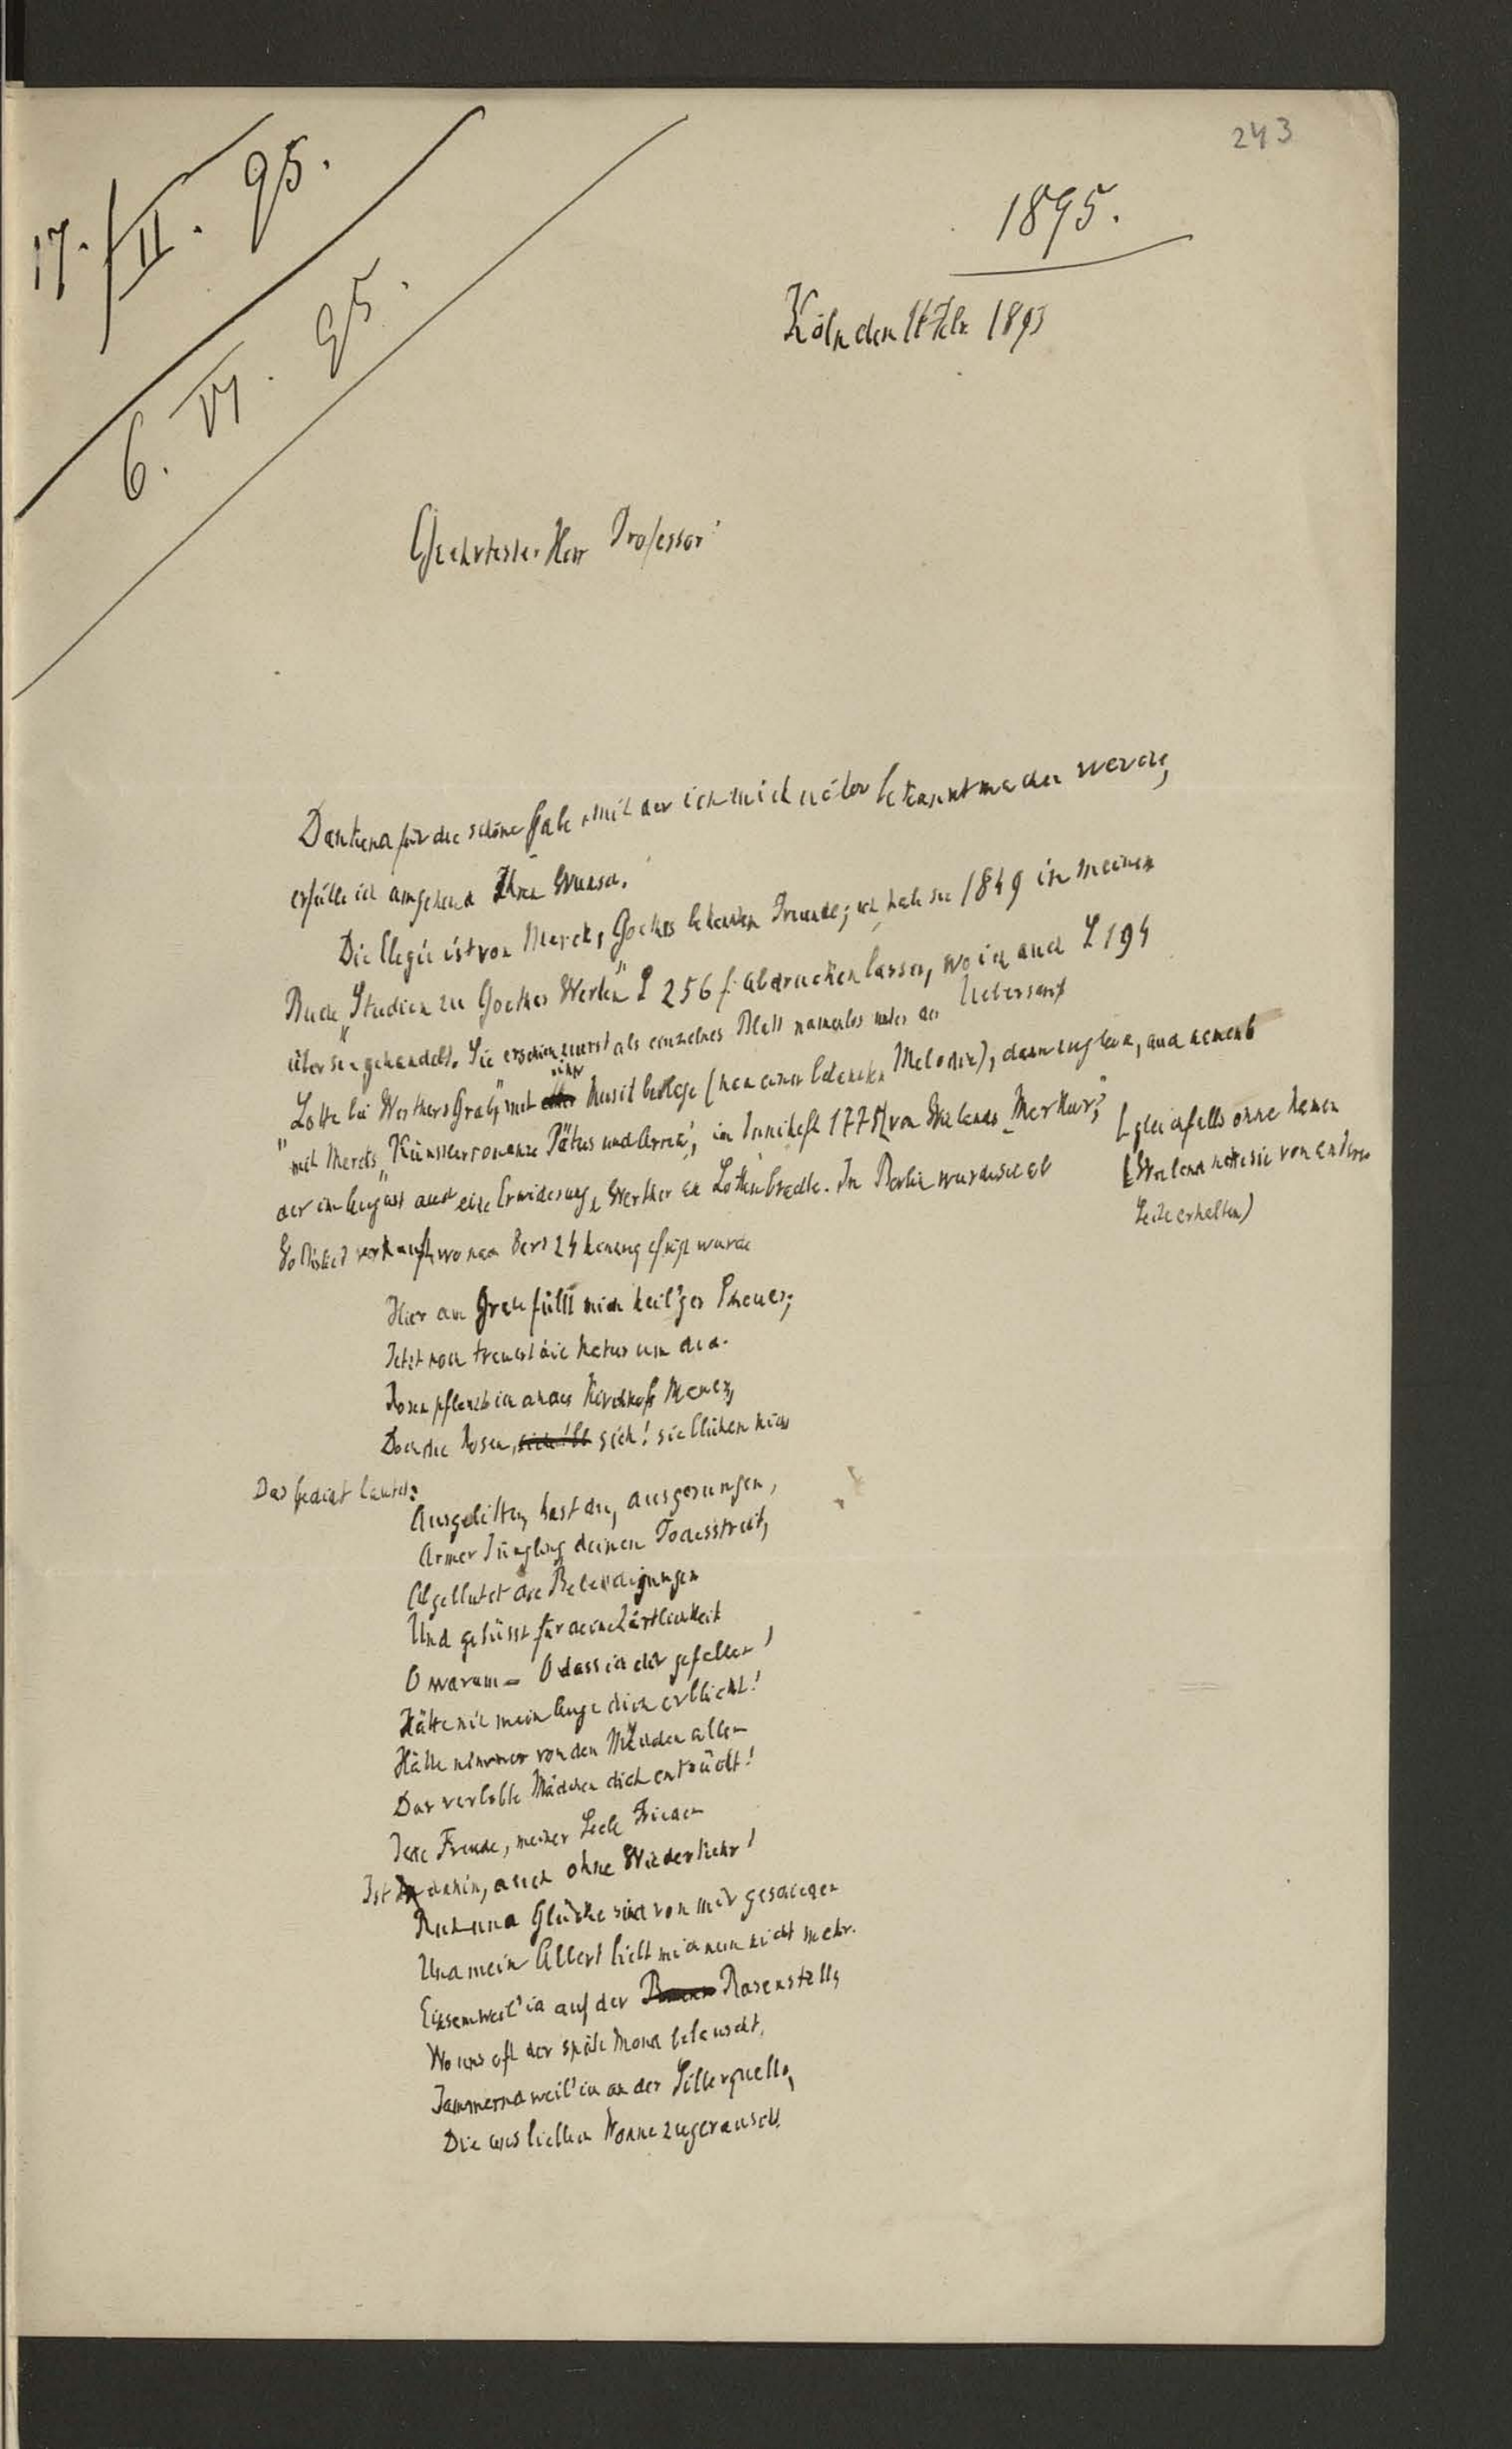 243
17./II. 95.
6. VI. 95.
1895.
Köln den Febr 1895
Geehrtester Herr Professor
Dankend für die schöne Gabe, mit der ich mich näher bekannt machen werde,
erfülle ich umgehend Ihren Wunsch.
Die Elegie ist von Merck, Goethes bekannten Freunde; ich habe sie 1849 in meinen
Buche „Studien zu Goethes Werken" S 256 f. abdrucken lassen, wo ich auch S 194
über sie gehandelt. Sie erschien zuerst als einzelnes Blatt namenlos unter der Ueberschrift
"Lotte bei Werthers Grab", mit einer Musikbeilage (nach einer bekannten Melodie), dann zugleich, und
mit Mercks „Künstlerromanze Pätus und Arria", im Juniheft 1775 von Wielands Merkur,
[gleichfalls ohne Namen
(Wieland hatte sie von anderer
Seite erhalten)
der im August auch eine Erwiderung, Werther an Lotten brachte. In Berlin wurde sie als
Volkslied verkauft, wo nach Vers 24 hinzugefügt wurde
Hier am Grab füllt mich heil'ger Schauer,
Jetzt noch trauert die Natur um dich.
Rosen pflanzt ich an des Kirchhofs Mauer,
Doch die Rosen, sieh! sie blühen nicht
Das Gedicht lautet:
Ausgelitten hast du, ausgerungen,
Armer Jüngling deinen Todesstreit,
Abgeblutet die Beleidigungen
Und gebüsst für deine Zärtlichkeit
O warum – O dass ich dir gefallen!
Hätte nie mein Auge dich erblickt!
Hätte nimmer von den Mädchen allen
Das verlobte Mädchen dich entzückt!
Jede Freude, meiner Seele Frieden
Ist dahin, auch ohne Wiederkehr!
Ruh und Glücke sind von mir geschieden
Und mein Albert liebt mich nun nicht mehr.
Einsam weil' ich auf der Rasenstelle,
Wo uns oft der späte Mond belauscht,
Jammernd weil' ich an der Silberquelle,
Die uns lieblich Wonne zugerauscht.